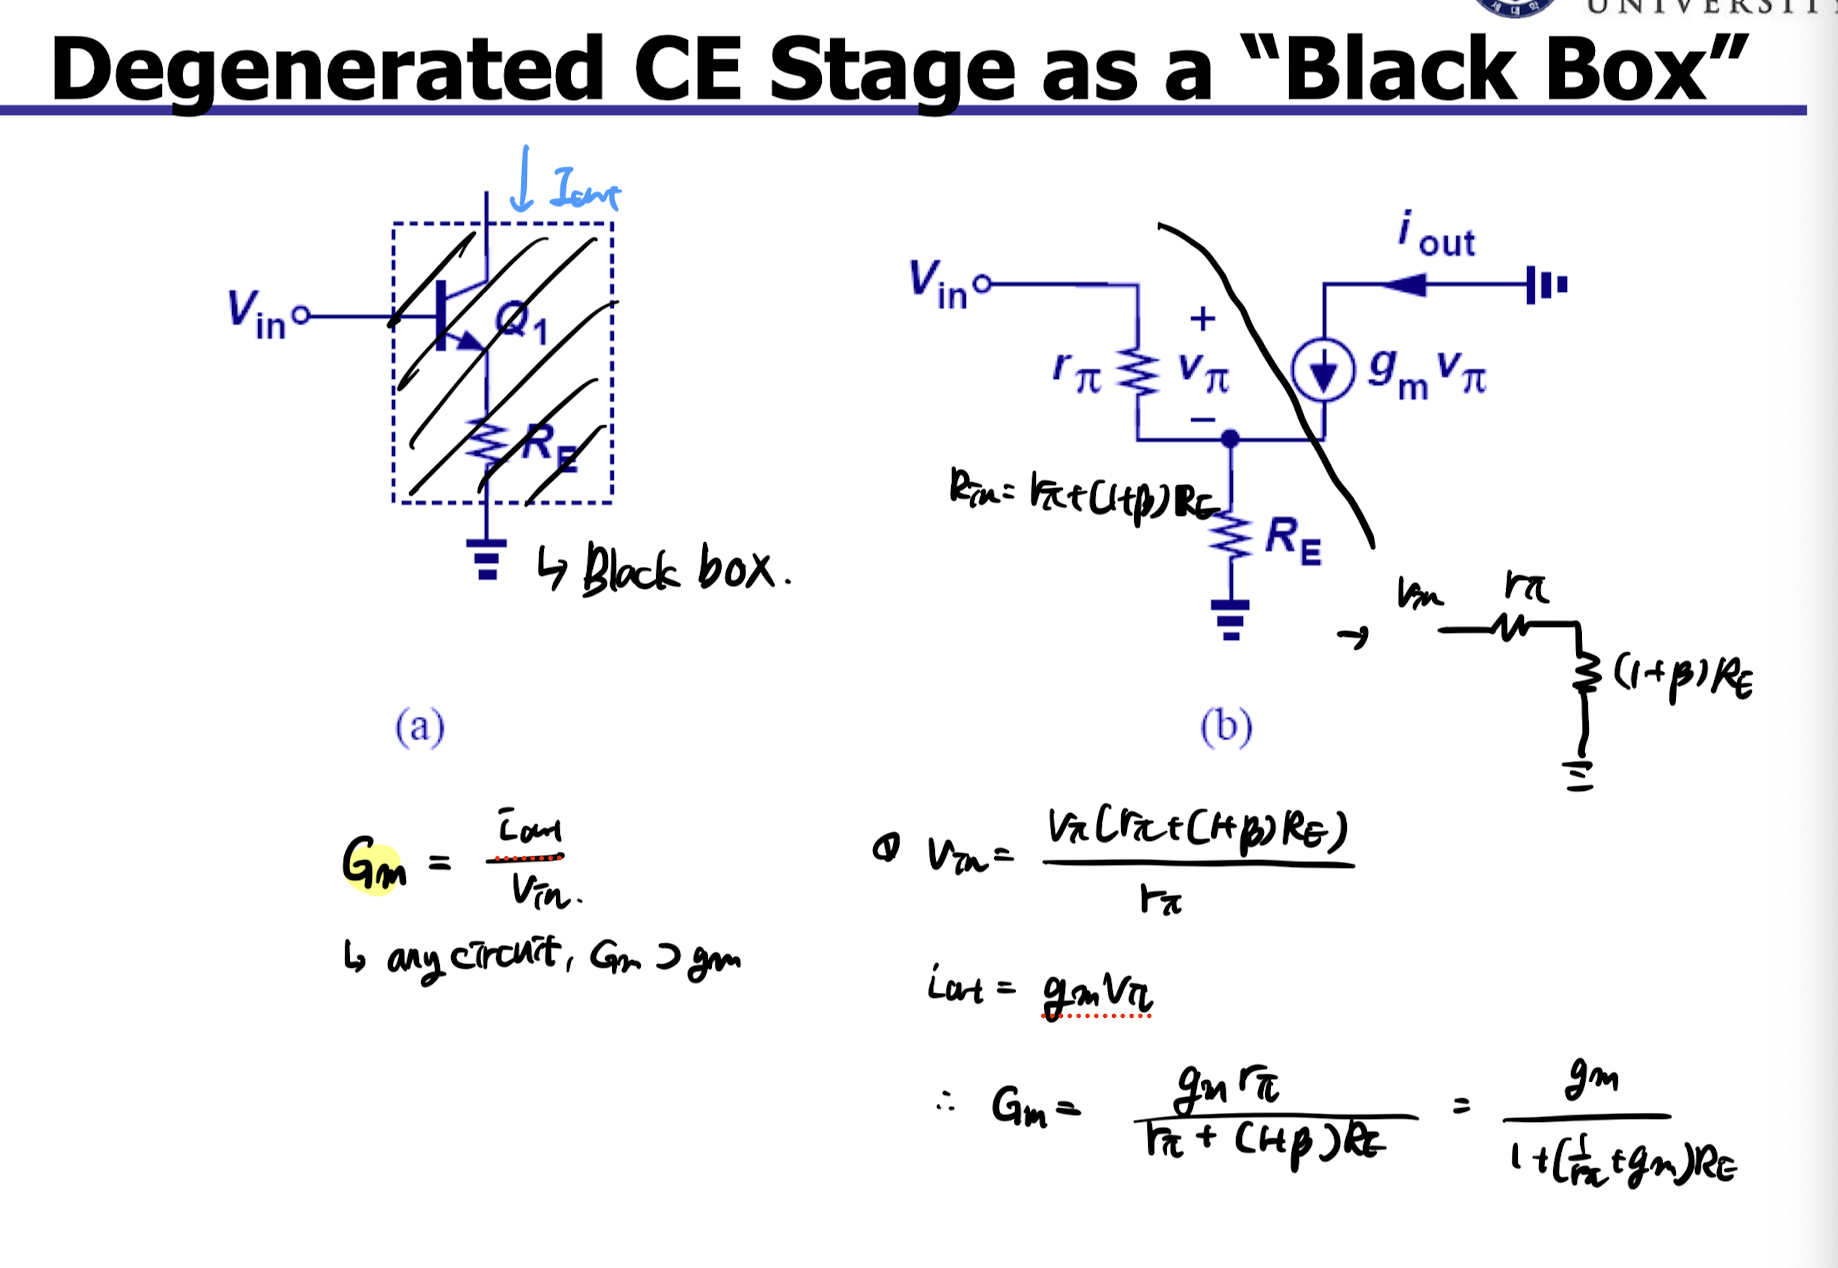 UNIVERSITY
Degenerated CE Stage as a “Black Box”
↓ Iout
Vin
Q1
RE
↳ Black box.
(a)
Vin
rπ
+
vπ
−
iout
gm vπ
Rin = rπ+(1+β)RE
RE
→ Vin rπ
(1+β)RE
(b)
Gm = iout / Vin.
↳ any circuit, Gm ⊃ gm
① Vin = Vπ(rπ+(1+β)RE) / rπ
iout = gmVπ
∴ Gm = gm rπ / rπ + (1+β)RE = gm / 1+(1/rπ+gm)RE